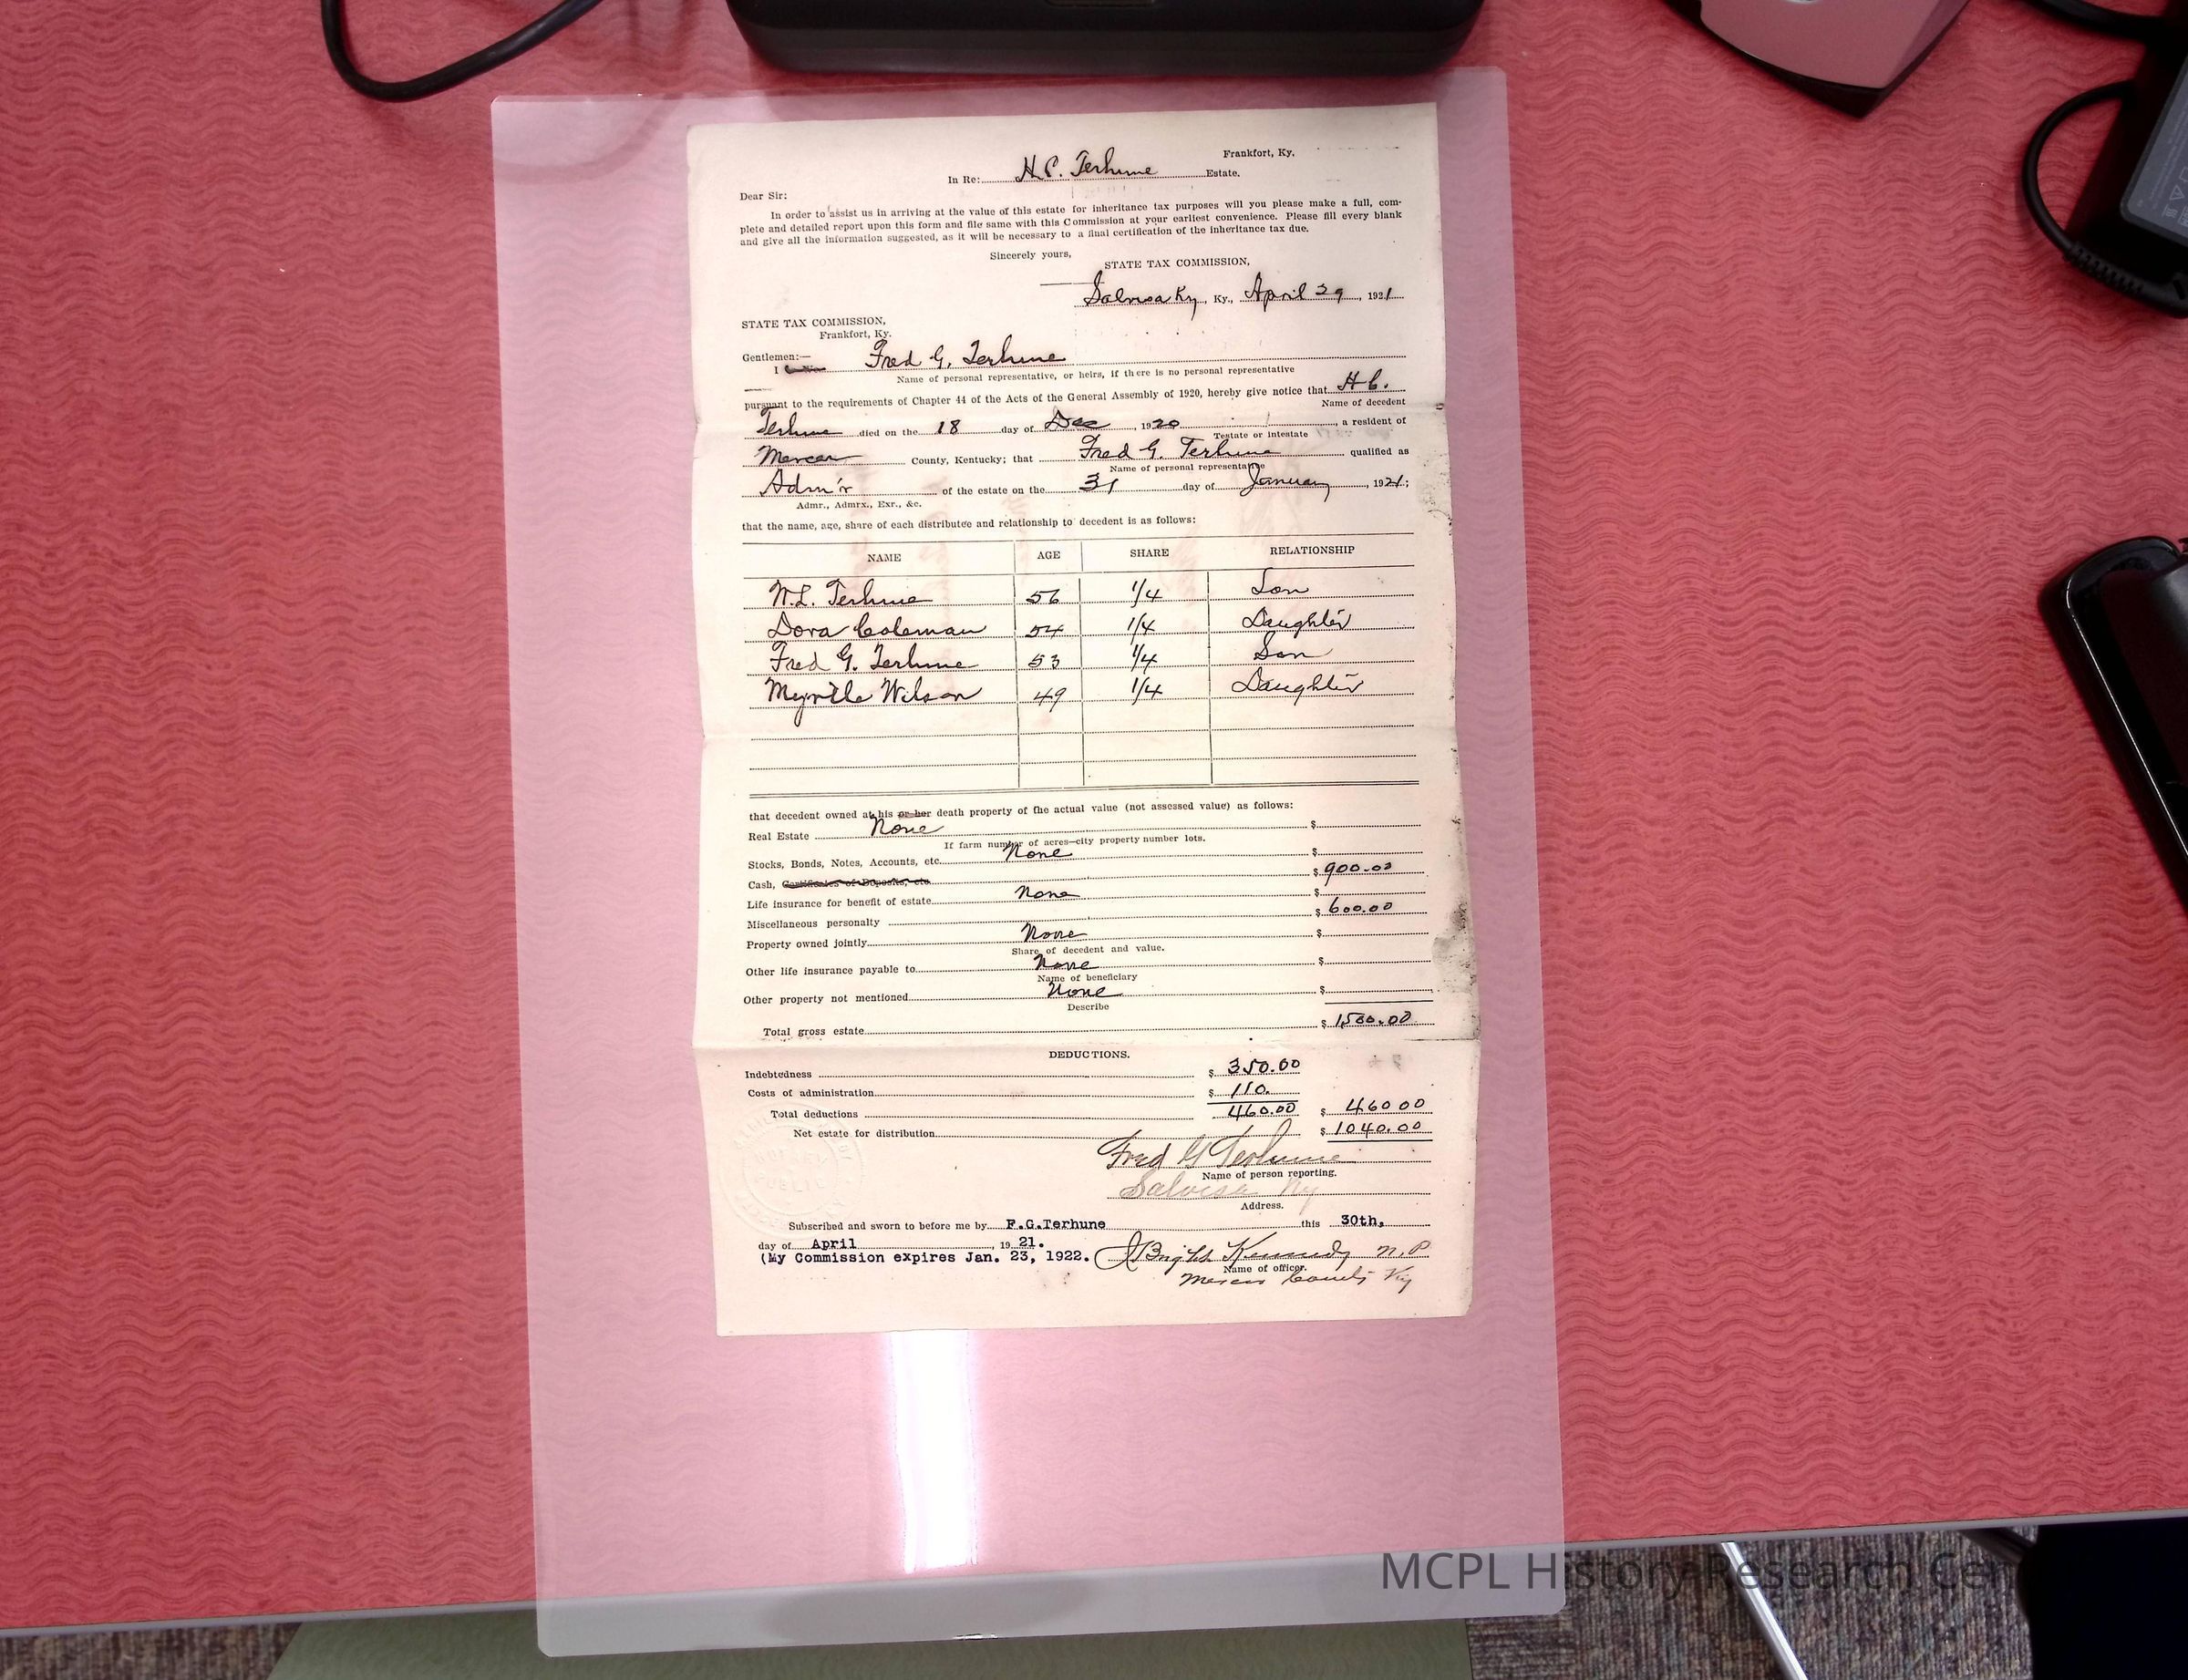 Frankfort, Ky.
In Re: H.C. Terhune Estate.
Dear Sir:
In order to assist us in arriving at the value of this estate for inheritance tax purposes will you please make a full, com-
plete and detailed report upon this form and file same with this Commission at your earliest convenience. Please fill every blank
and give all the information suggested, as it will be necessary to a final certification of the inheritance tax due.
Sincerely yours,
STATE TAX COMMISSION,
Salvisa Ky, Ky., April 29, 1921
STATE TAX COMMISSION,
Frankfort, Ky.
Gentlemen:—
I Fred G. Terhune
Name of personal representative, or heirs, if there is no personal representative
pursuant to the requirements of Chapter 44 of the Acts of the General Assembly of 1920, hereby give notice that H C.
Name of decedent
Terhune died on the 18 day of Dec, 1920, a resident of
Testate or intestate
Mercer County, Kentucky; that Fred G. Terhune qualified as
Name of personal representative
Adm'r of the estate on the 31 day of January, 1921;
Admr., Admrx., Exr., &c.
that the name, age, share of each distributee and relationship to decedent is as follows:
NAME AGE SHARE RELATIONSHIP
W.L. Terhune 56 1/4 Son
Dora Coleman 54 1/4 Daughter
Fred G. Terhune 53 1/4 Son
Myrtle Wilson 49 1/4 Daughter
that decedent owned at his or her death property of the actual value (not assessed value) as follows:
Real Estate None $
If farm number of acres—city property number lots.
Stocks, Bonds, Notes, Accounts, etc. None $
Cash, Certificates of Deposits, etc $900.00
Life insurance for benefit of estate None $
Miscellaneous personalty $600.00
Property owned jointly None $
Share of decedent and value.
Other life insurance payable to None $
Name of beneficiary
Other property not mentioned None $
Describe
Total gross estate $1500.00
DEDUCTIONS.
Indebtedness $350.00
Costs of administration $110.
Total deductions 460.00 $460 00
Net estate for distribution $1040.00
Fred G Terhune
Name of person reporting.
Salvisa Ky
Address.
Subscribed and sworn to before me by F.G.Terhune this 30th,
day of April, 19 21.
(My Commission expires Jan. 23, 1922. J Bright Kennedy N.P.
Name of officer.
Mercer County Ky
MCPL History Research Cen